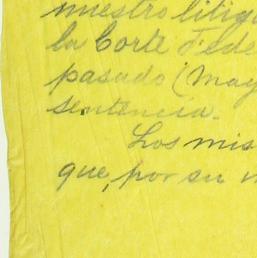 nuestro litig
la Corte Fede
pasado (May
sentencia.
Los mis
que, por su